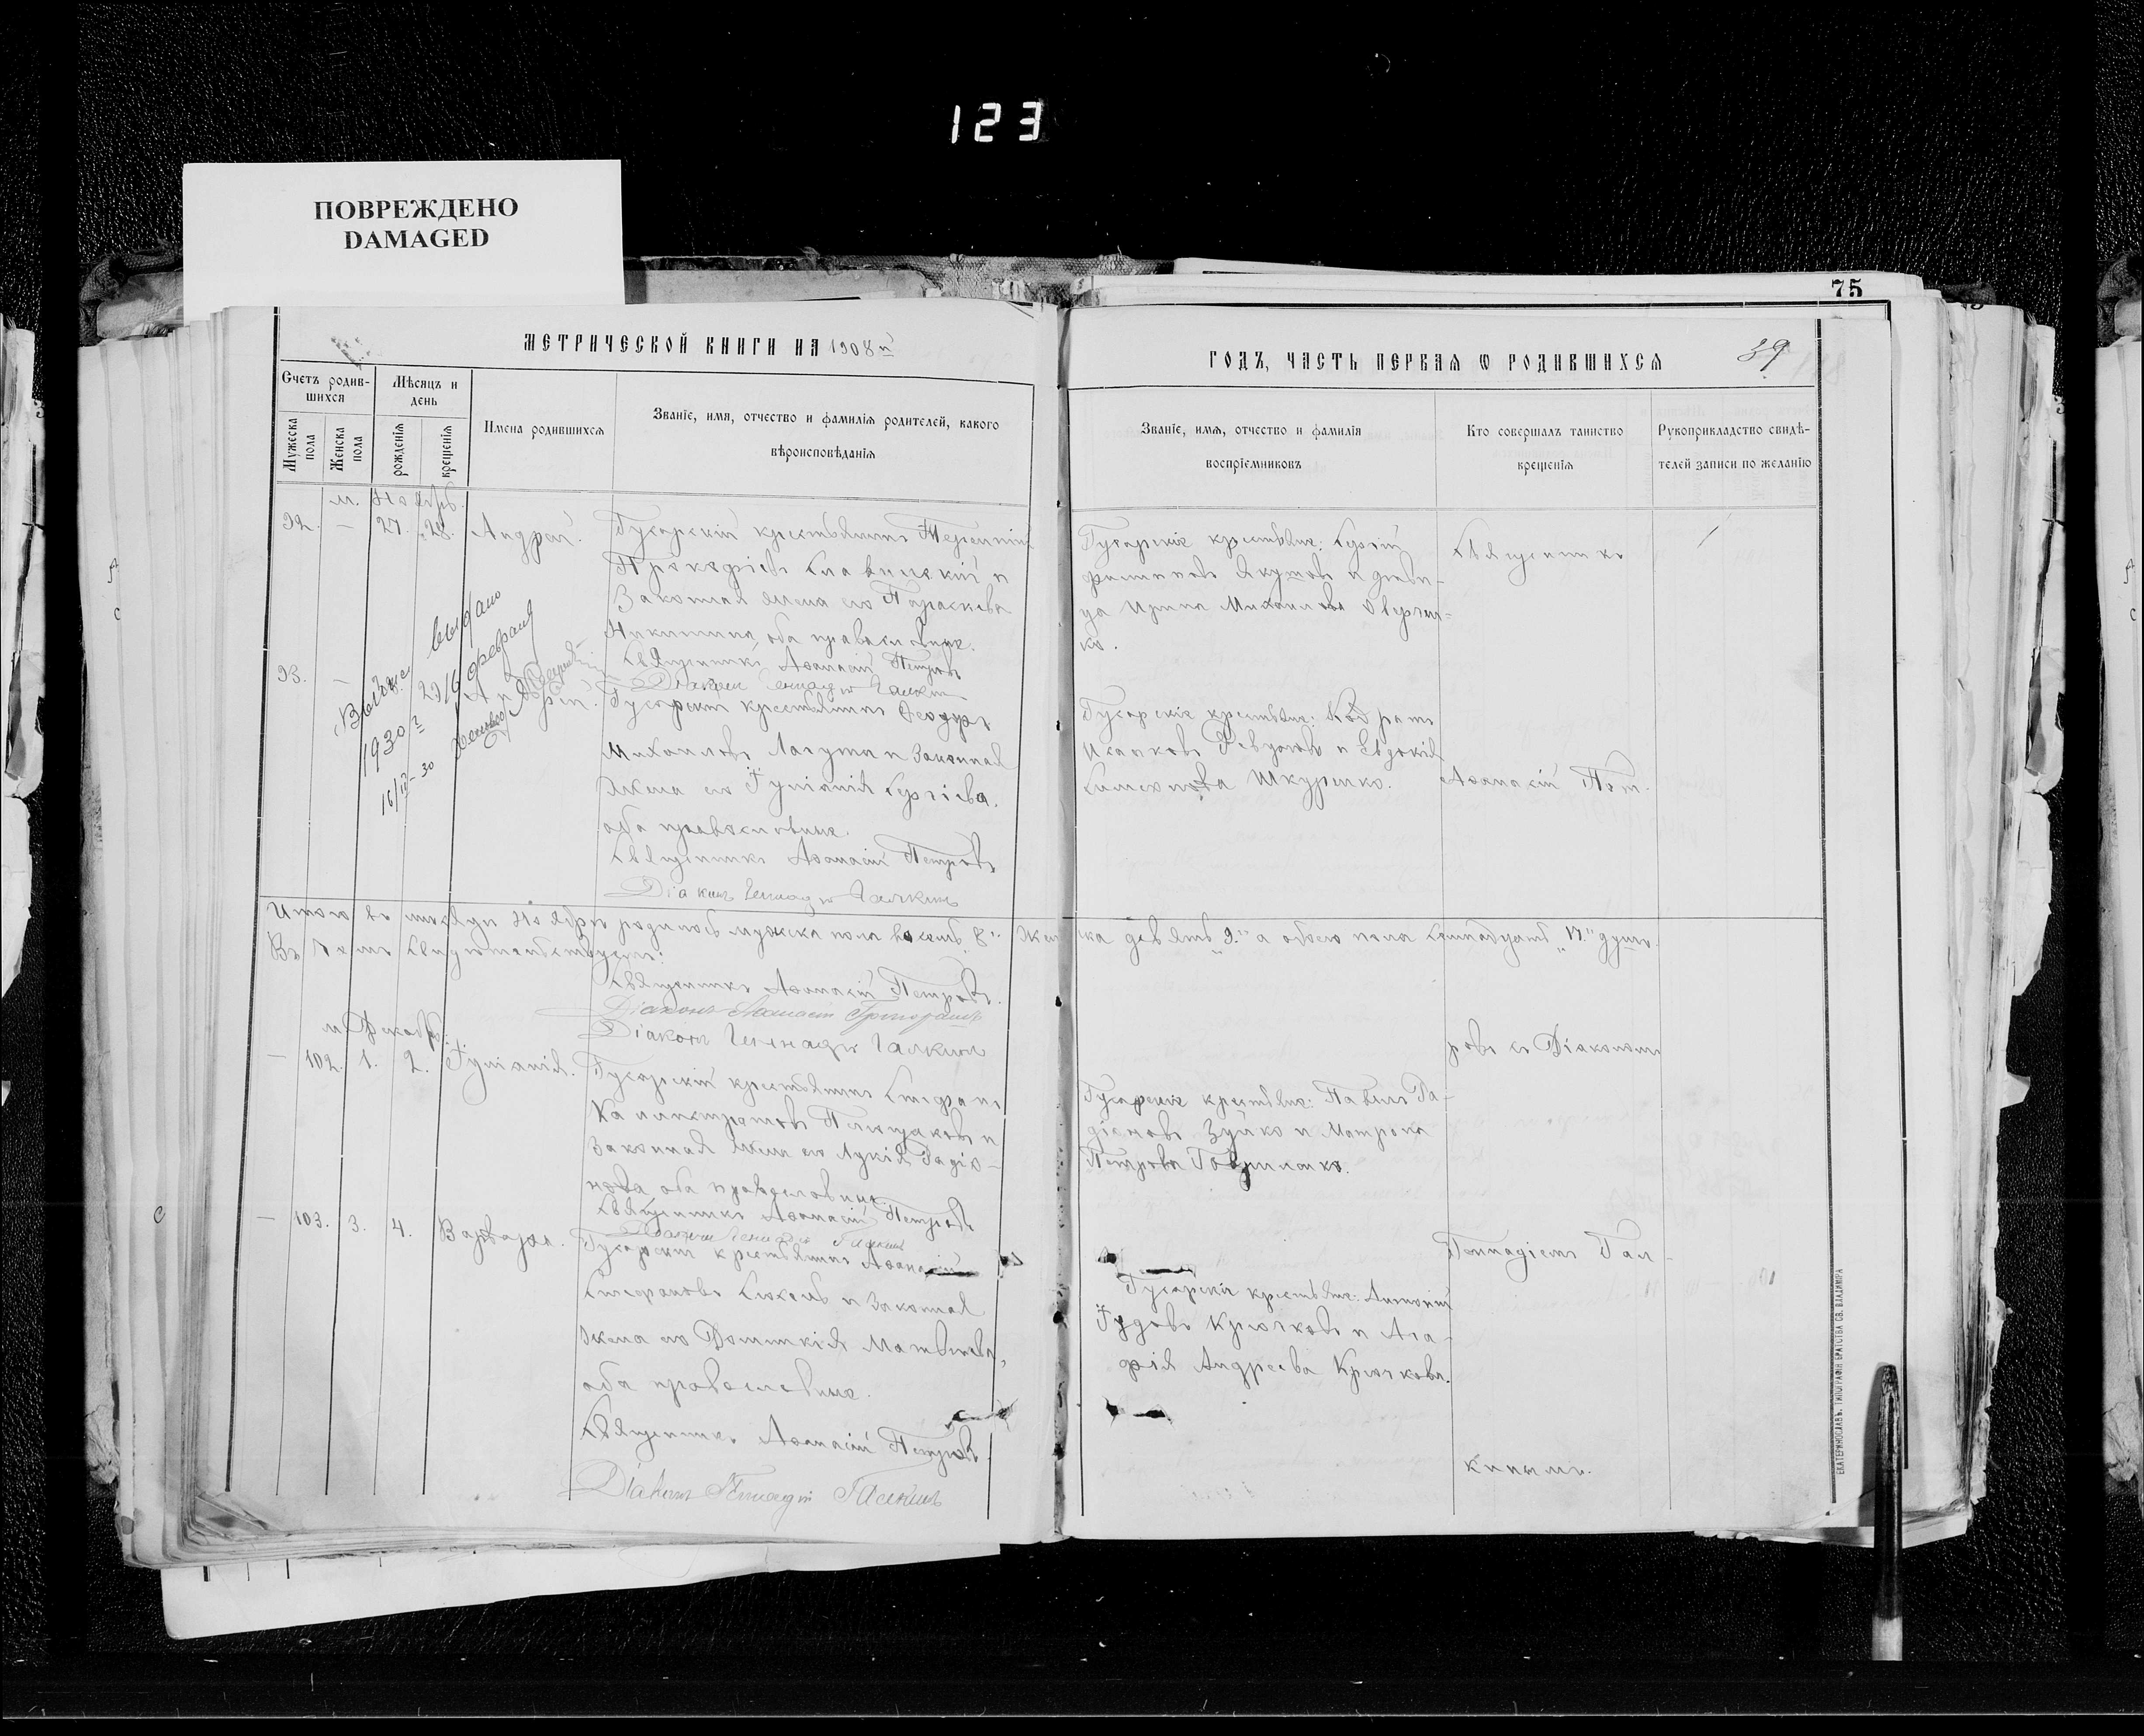 123
ПОВРЕЖДЕНО
DAMAGED
75
МЕТРИЧЕСКОЙ КНИГИ НА 1908й
ГОДЪ, ЧАСТЬ ПЕРВАЯ Ѡ РОДИВШИХСЯ
39
Счетъ родив-
шихся
Мѣсяцъ и
день
Мужеска
пола
Женска
пола
рожденія
крещенія
Имена родившихся
Званіе, имя, отчество и фамилія родителей, какого
вѣроисповѣданія
Званіе, имя, отчество и фамилія
воспріемниковъ
Кто совершалъ таинство
крещенія
Рукоприкладство свидѣ-
телей записи по желанію
м. Ноябрь.
92. — 27. 28. Андрей. Гусарскій крестьянинъ Терентій
Прокофіевъ и
Законная жена его Параскева
Никитина, оба православные.
Священникъ Аѳанасій Петровъ
Діаконъ Геннадій Галкинъ
Гусарскіе крестьяне: Сергій
Филиповъ Якушовъ и дѣви-
ца Ирина Михаилова Оверчен-
ко.
Священникъ
выдано
1930 г
29/6 февраля
16/II-30
93. — Андрей. Гусарскій крестьянинъ Ѳеодоръ
Михаиловъ Лагута и Законная
жена его Іуліанія Сергіева,
оба православные.
Священникъ Аѳанасій Петровъ
Діаконъ Геннадій Галкинъ
Гусарскіе крестьяне:
и Евдокія
Симеонова Шкуренко.
Аѳанасій Пет-
Итого въ мѣсяцѣ Ноябрѣ родилось мужска пола восемь „8“ женска девять „9.“ а обоего пола семнадцать „17.“ душъ.
Въ чемъ свидѣтельствуемъ:
Священникъ Аѳанасій Петровъ.
Діаконъ Аѳанасій
Діаконъ Геннадій Галкинъ
м. Декабрь.
ровъ съ Діакономъ
— 102. 1. 2. Іуліанія. Гусарскій крестьянинъ Стефанъ
Калистратовъ и
Законная жена его Лукія Радіо-
нова, оба православные.
Священникъ Аѳанасій Петровъ
Діаконъ Геннадій Галкинъ
Гусарскіе крестьяне: Павелъ Ра-
діоновъ Зуйко и Матрона
Петрова Гавриленко.
— 103. 3. 4. Варвара. Гусарскій крестьянинъ Аѳанасій
Стефановъ и Законная
жена его Домникія Матвѣева,
оба православные.
Священникъ Аѳанасій Петровъ
Діаконъ Геннадій Галкинъ
Гусарскіе крестьяне: Антоній
Іудовъ Крючковъ и Ага-
фія Андреева Крючкова.
Геннадіемъ Гал-
кинымъ.
ЕКАТЕРИНОСЛАВЪ. ТИПОГРАФІЯ БРАТСТВА СВ. ВЛАДИМІРА